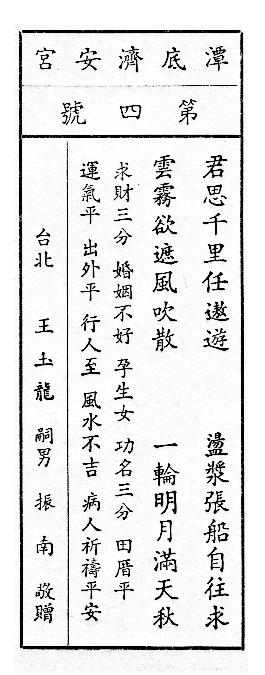 潭底濟安宮
第四號
君思千里任遨遊 盪槳張船自往求
雲霧欲遮風吹散 一輪明月滿天秋
求財三分 婚姻不好 孕生女 功名三分 田厝平
運氣平 出外平 行人至 風水不吉 病人祈禱平安
台北 王土龍 嗣男 振南 敬贈